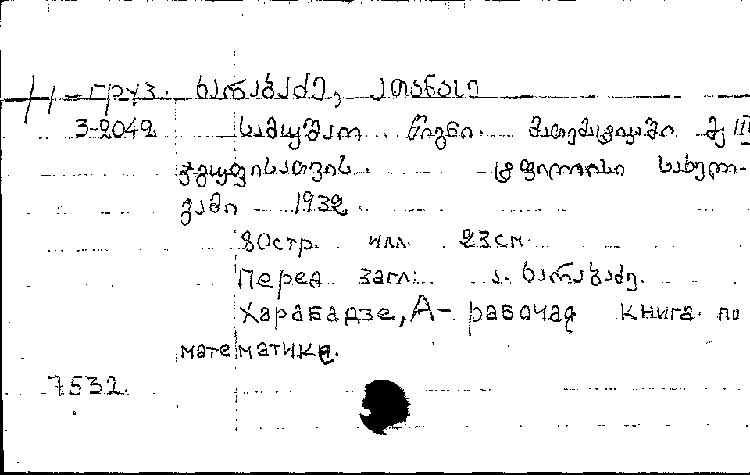 Н-груз. ხარაბაძე, ათანასე
3-2042 სამუშაო წიგნი. მათემატიკაში მე III
ჯგუფისათვის. ტფილისი სახელ-
გამი 1932
80стр. илл. 23см.
Перед загл: ა. ხარაბაძე.
Харабадзе, А- рабочая книга по
математике.
7532.